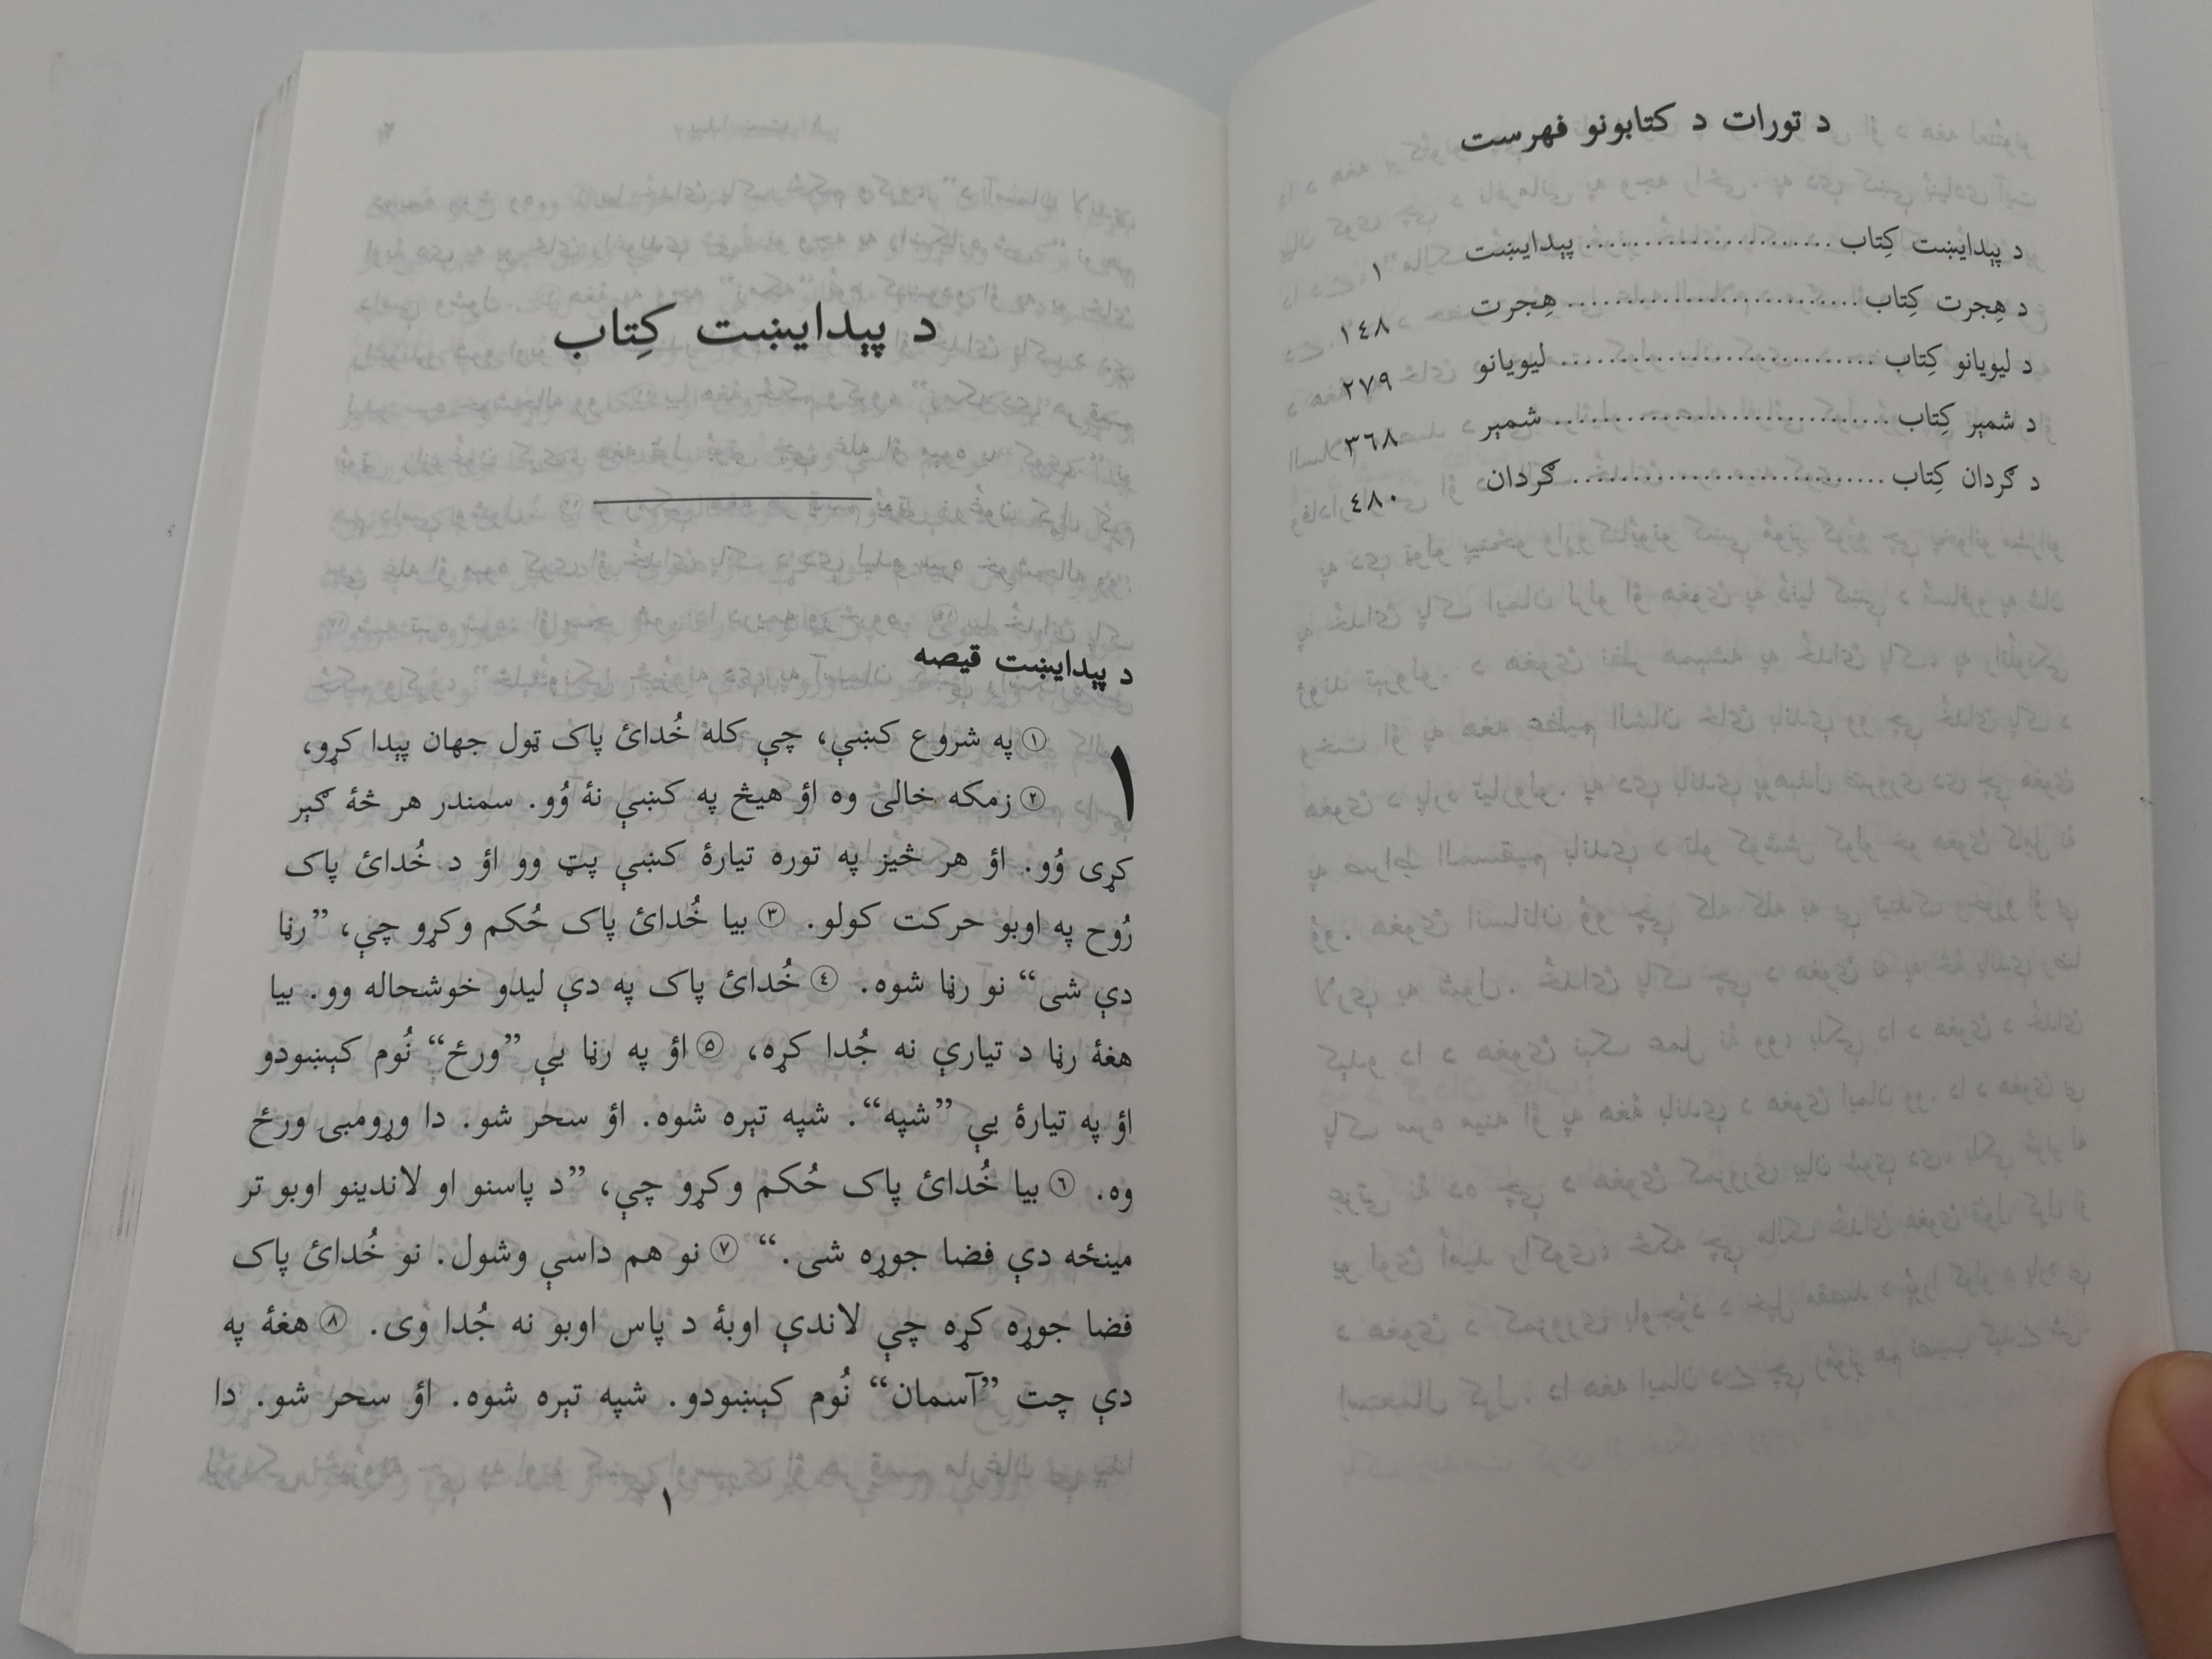 د تورات د کتابونو فهرست
د پېدایښت کِتاب ........................ پېدایښت ١
د هِجرت کِتاب ........................ هِجرت ١٤٨
د لیویانو کِتاب ........................ لیویانو ٢٧٩
د شمېر کِتاب ........................ شمېر ٣٦٨
د ګردان کِتاب ........................ ګردان ٤٨٠
د پېدایښت کِتاب
د پېدایښت قیصه
١ ①په شروع کښې، چې کلهٔ خُدائ پاک ټول جهان پېدا کړو،
②زمکه خالی وه اؤ هیڅ په کښې نهٔ وُو. سمندر هر څهٔ ګېر
کړی وُو. اؤ هر څیز په توره تیارهٔ کښې پټ وو اؤ د خُدائ پاک
رُوح په اوبو حرکت کولو. ③بیا خُدائ پاک حُکم وکړو چې، ”رڼا
دې شی“ نو رڼا شوه. ④خُدائ پاک په دې لیدو خوشحاله وو. بیا
هغهٔ رڼا د تیارې نه جُدا کړه، ⑤اؤ په رڼا یې ”ورځ“ نُوم کېښودو
اؤ په تیارهٔ یې ”شپه“. شپه تېره شوه. اؤ سحر شو. دا وړومبۍ ورځ
وه. ⑥بیا خُدائ پاک حُکم وکړو چې، ”د پاسنو او لاندینو اوبو تر
مینځه دې فضا جوړه شی.“ ⑦نو هم داسې وشول. نو خُدائ پاک
فضا جوړه کړه چې لاندې اوبهٔ د پاس اوبو نه جُدا وُی. ⑧هغهٔ په
دې چت ”آسمان“ نُوم کېښودو. شپه تېره شوه. اؤ سحر شو. دا
١